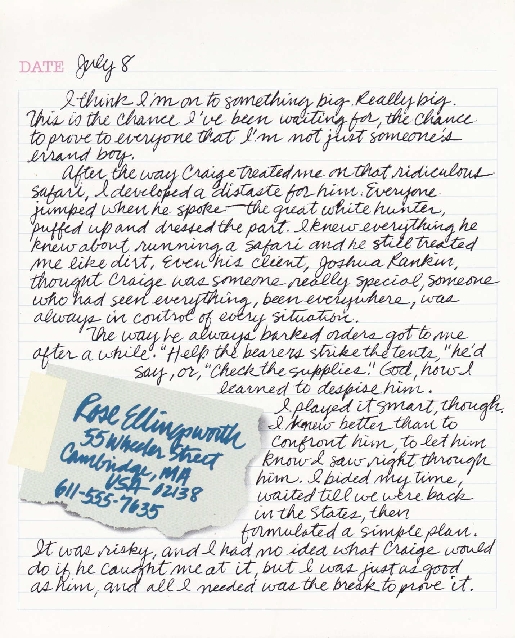 DATE July 8
I think I'm on to something big. Really big.
This is the chance I've been waiting for, the chance
to prove to everyone that I'm not just someone's
errand boy.
After the way Craige treated me on that ridiculous
safari, I developed a distaste for him. Everyone
jumped when he spoke—the great white hunter,
puffed up and dressed the part. I knew everything he
knew about running a safari and he still treated
me like dirt. Even his client, Joshua Rankin,
thought Craige was someone really special, someone
who had seen everything, been everywhere, was
always in control of every situation.
The way he always barked orders got to me
after a while. "Help the bearers strike the tents," he'd
say, or, "Check the supplies." God, how I
learned to despise him.
I played it smart, though.
I knew better than to
confront him, to let him
know I saw right through
him. I bided my time,
waited till we were back
in the States, then
formulated a simple plan.
It was risky, and I had no idea what Craige would
do if he caught me at it, but I was just as good
as him, and all I needed was the break to prove it.
Rose Ellingsworth
55 Wheeler Street
Cambridge, MA
USA 02138
611-555-7635